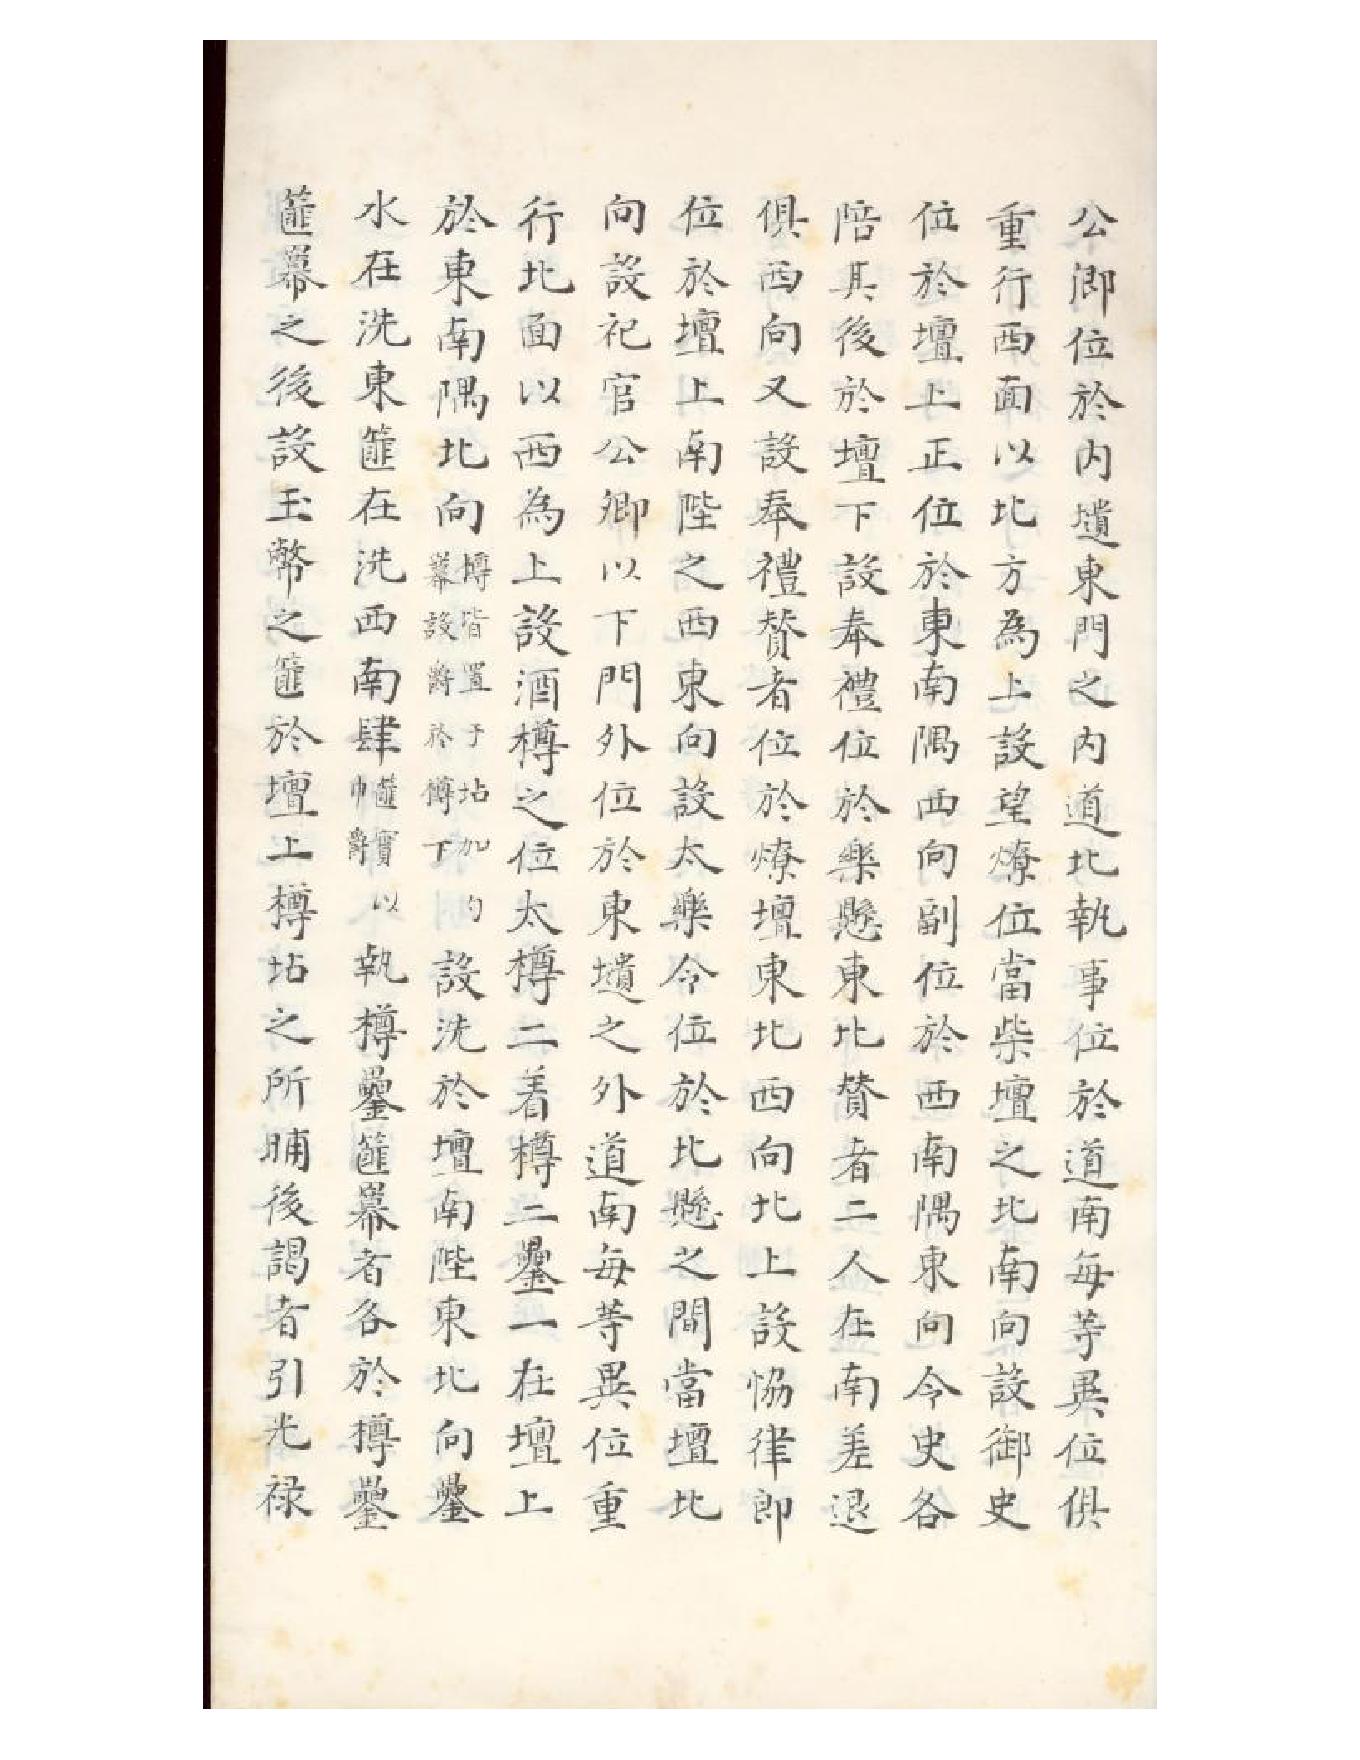 公卿位於內壝東門之內道北執事位於道南每等異位俱
重行西面以北方為上設望燎位當柴壇之北南向設御史
位於壇上正位於東南隅西向副位於西南隅東向令史各
陪其後於壇下設奉禮位於樂懸東北贊者二人在南差退
俱西向又設奉禮贊者位於燎壇東北西向北上設恊律郎
位於壇上南陛之西東向設太樂令位於北懸之間當壇北
向設祀官公卿以下門外位於東壝之外道南每等異位重
行北面以西為上設酒樽之位太樽二着樽二罍一在壇上
於東南隅北向樽皆置于坫加勺冪設爵於樽下設洗於壇南陛東北向罍
水在洗東篚在洗西南肆篚實以巾爵執樽罍篚冪者各於樽罍
篚冪之後設玉幣之篚於壇上樽坫之所晡後謁者引光祿